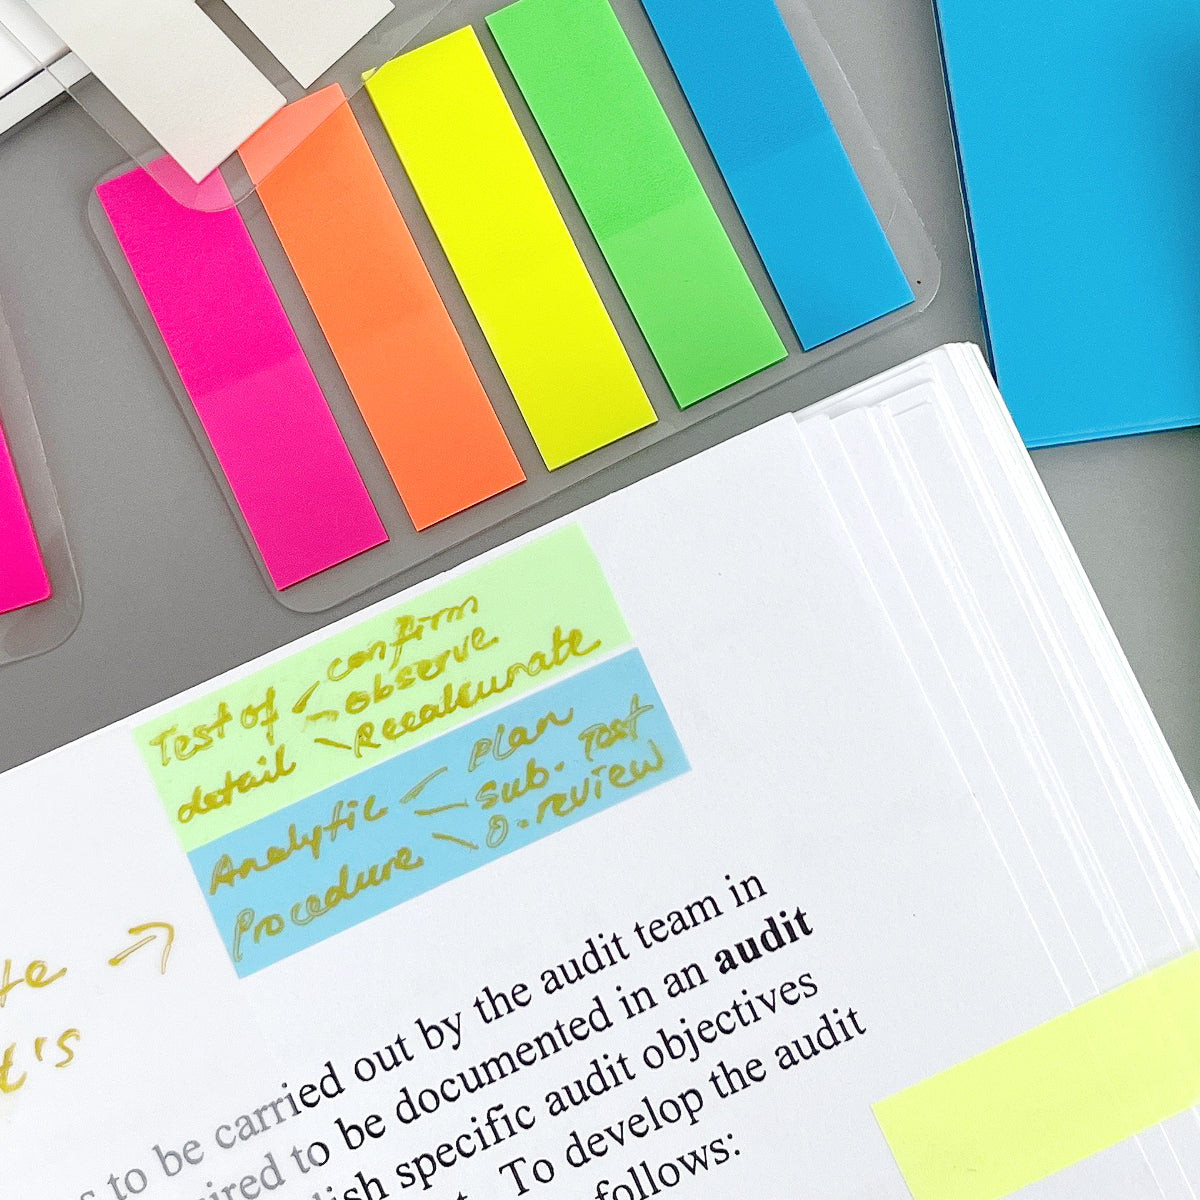 confirm
Test of observe
detail Recalcurate
Plan
Analytic sub. Test
Procedure O. review
te →
t's
s to be carried out by the audit team in
ired to be documented in an audit
lish specific audit objectives
t. To develop the audit
follows: